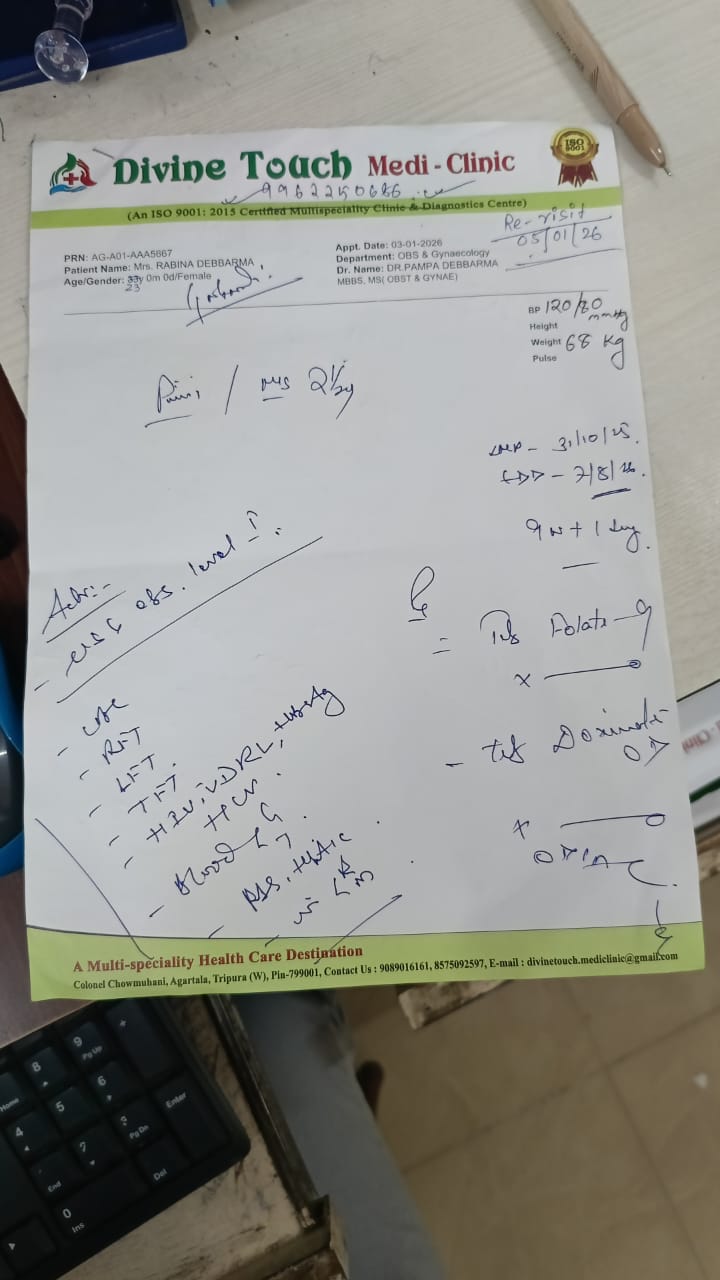 Divine Touch Medi-Clinic
ISO 9001
(An ISO 9001: 2015 Certified Multispeciality Clinic & Diagnostics Centre)
Re-visit
05/01/26
PRN: AG-A01-AAA5667
Patient Name: Mrs. RABINA DEBBARMA
Age/Gender: y 0m 0d/Female
23
Appt. Date: 03-01-2026
Department: OBS & Gynaecology
Dr. Name: DR.PAMPA DEBBARMA
MBBS, MS( OBST & GYNAE)
BP 120/80 mmHg
Height
Weight 68 Kg
Pulse
LMP - 31/10/25.
EDD - 7/8/26.
9w + 1 day.
Adv:-
- USG obs. level I.
- CBC
- RFT
- LFT.
- TFT
- HIV, VDRL, HBsAg
HCV.
- Blood G
- RBS, HbA1c
- Folate
x
-
OD
x
A Multi-speciality Health Care Destination
Colonel Chowmuhani, Agartala, Tripura (W), Pin-799001, Contact Us : 9089016161, 8575092597, E-mail : divinetouch.mediclinic@gmail.com
Home
8
9
Pg Up
+
4
5
6
End
2
3
Pg Dn
Enter
0
Ins
Del